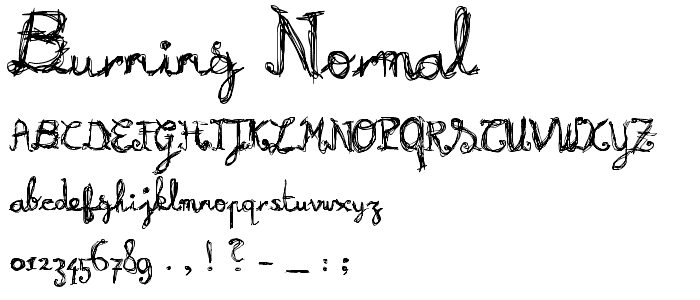 Burning Normal
ABCDEFGHIJKLMNOPQRSTUVWXYZ
abcdefghijklmnopqrstuvwxyz
0123456789 . , ! ? - _ : ;